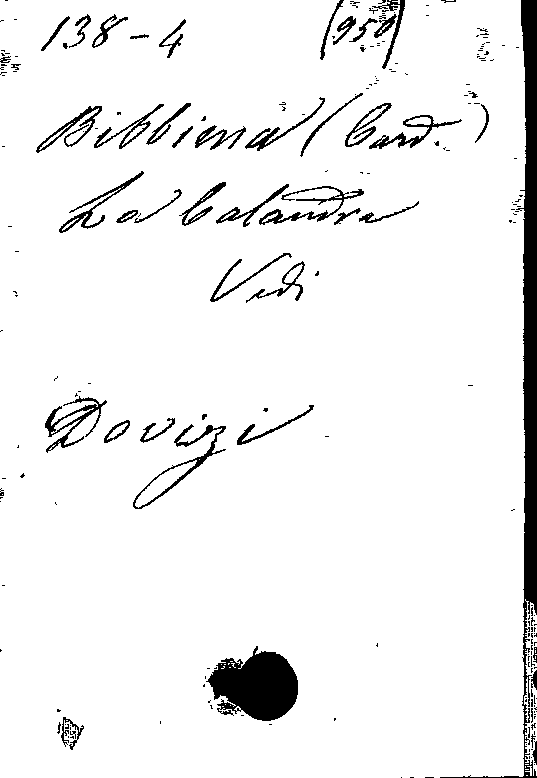 138-4 (950)
Bibbiena (Card.)
La Calandra
Vedi
Dovizi